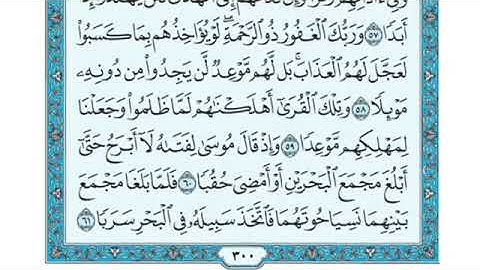 أَبَدًا ۝٥٧ وَرَبُّكَ ٱلْغَفُورُ ذُو ٱلرَّحْمَةِ ۖ لَوْ يُؤَاخِذُهُم بِمَا كَسَبُوا۟
لَعَجَّلَ لَهُمُ ٱلْعَذَابَ ۚ بَل لَّهُم مَّوْعِدٌ لَّن يَجِدُوا۟ مِن دُونِهِۦ
مَوْئِلًا ۝٥٨ وَتِلْكَ ٱلْقُرَىٰٓ أَهْلَكْنَٰهُمْ لَمَّا ظَلَمُوا۟ وَجَعَلْنَا
لِمَهْلِكِهِم مَّوْعِدًا ۝٥٩ وَإِذْ قَالَ مُوسَىٰ لِفَتَىٰهُ لَآ أَبْرَحُ حَتَّىٰٓ
أَبْلُغَ مَجْمَعَ ٱلْبَحْرَيْنِ أَوْ أَمْضِىَ حُقُبًا ۝٦٠ فَلَمَّا بَلَغَا مَجْمَعَ
بَيْنِهِمَا نَسِيَا حُوتَهُمَا فَٱتَّخَذَ سَبِيلَهُۥ فِى ٱلْبَحْرِ سَرَبًا ۝٦١
٣٠٠